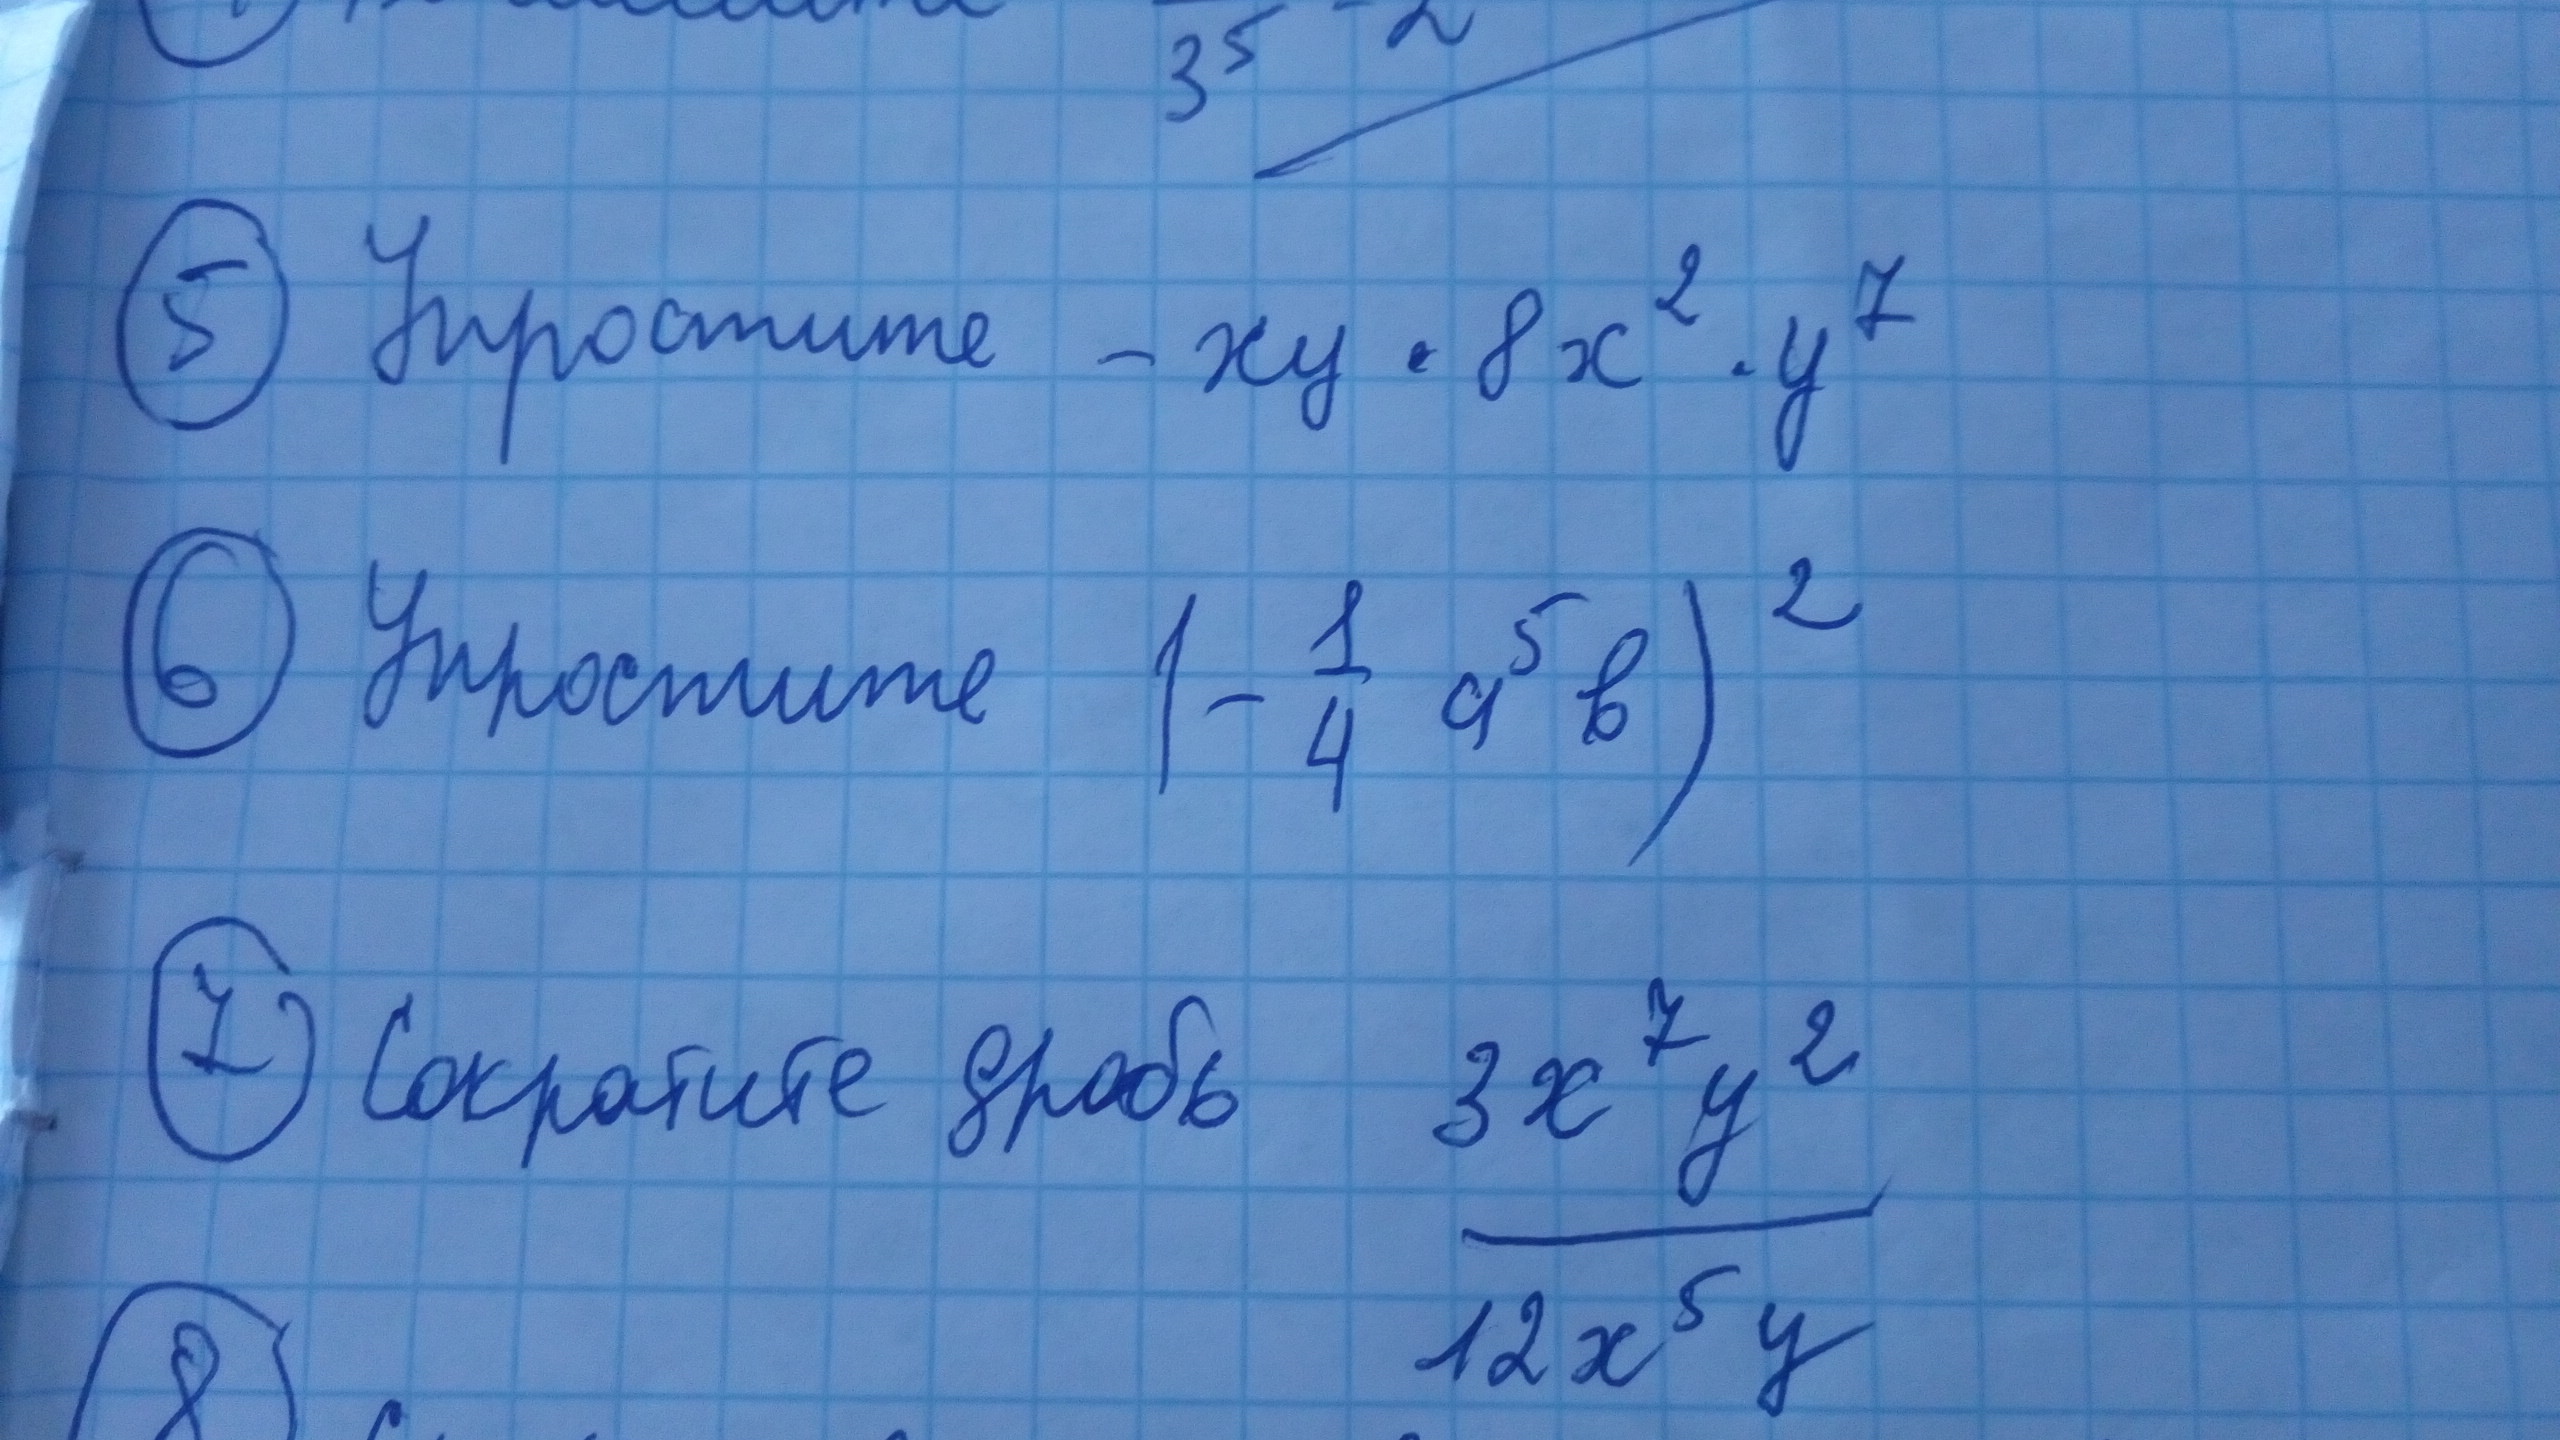 3⁵ · 2
5 Упростите - xy · 8x² · y⁷
6 Упростите (- 1/4 a⁵b)²
7 Сократите дробь 3x⁷y² / 12x⁵y
8